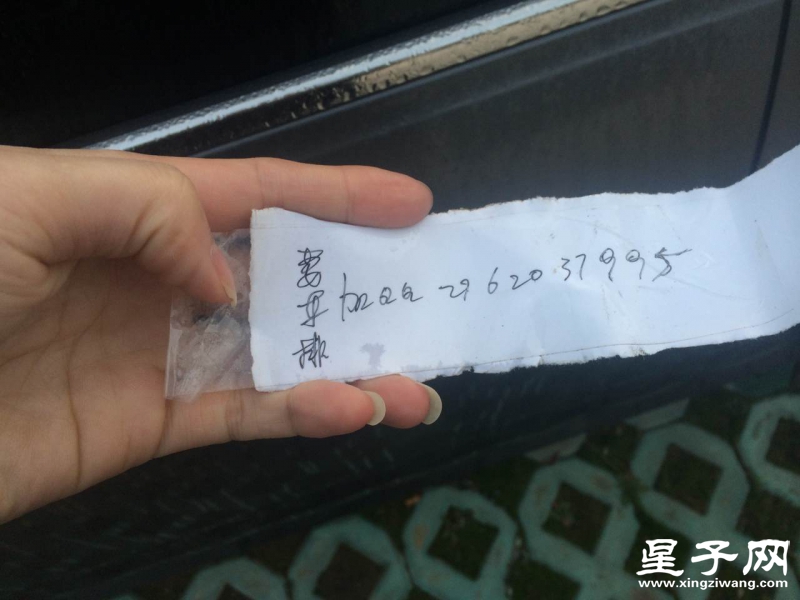 要车牌
加QQ 2962037995
星子网
www.xingziwang.com